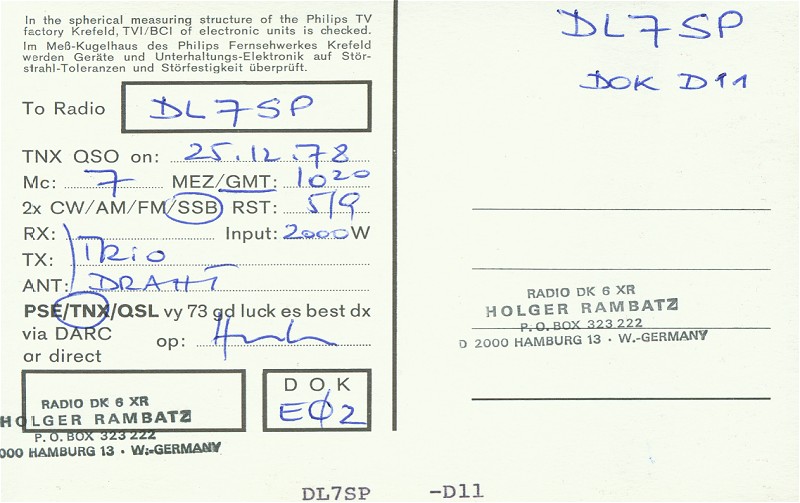 In the spherical measuring structure of the Philips TV
factory Krefeld, TVI/BCI of electronic units is checked.
Im Meß-Kugelhaus des Philips Fernsehwerkes Krefeld
werden Geräte und Unterhaltungs-Elektronik auf Stör-
strahl-Toleranzen und Störfestigkeit überprüft.
To Radio DL7SP
TNX QSO on: 25.12.78
Mc: 7 MEZ/GMT: 1020
2x CW/AM/FM/SSB RST: 5/9
RX: Input: 2000W
TX: TRIO
ANT: DRAHT
PSE/TNX/QSL vy 73 gd luck es best dx
via DARC
or direct op:
RADIO DK 6 XR
HOLGER RAMBATZ
P.O. BOX 323 222
000 HAMBURG 13 · W.-GERMANY
DOK
EØ2
DL7SP
DOK D11
RADIO DK 6 XR
HOLGER RAMBATZ
P.O. BOX 323 222
D 2000 HAMBURG 13 · W.-GERMANY
DL7SP -D11